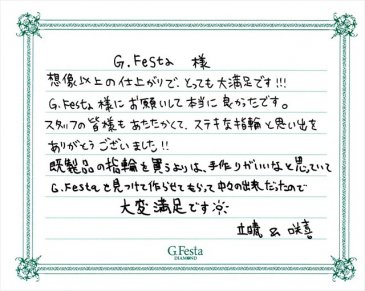 G.Festa 様
想像以上の仕上がりで、とっても大満足です!!!
G.Festa様にお願いして本当に良かったです。
スタッフの皆様もあたたかくて、ステキな指輪と思い出を
ありがとうございました!!
既製品の指輪を買うよりは、手作りがいいなと思っていて
G.Festaを見つけて作らせてもらって中々の出来だったので
大変満足です
G.Festa
DIAMOND